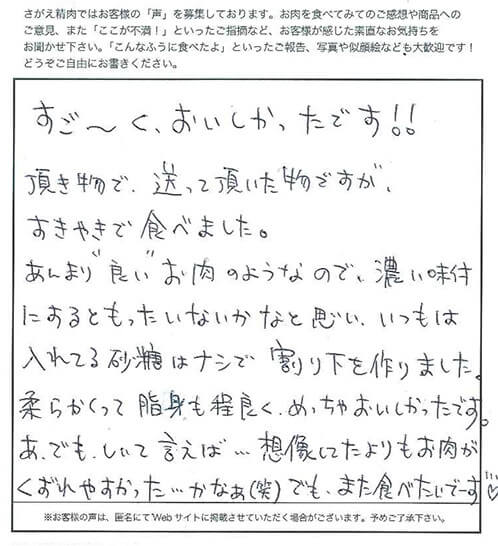 さがえ精肉ではお客様の「声」を募集しております。お肉を食べてみてのご感想や商品への
ご意見、また「ここが不満！」といったご指摘など、お客様が感じた素直なお気持ちを
お聞かせ下さい。「こんなふうに食べたよ」といったご報告、写真や似顔絵なども大歓迎です！
どうぞご自由にお書きください。
すご〜く、おいしかったです!!
頂き物で、送って頂いた物ですが、
すきやきで食べました。
あんまり"良い"お肉のようなので、濃い味付
にするともったいないかなと思い、いつもは
入れてる砂糖はナシで割り下を作りました。
柔らかくって脂身も程良く、めっちゃおいしかったです。
あ、でも、しいて言えば…想像してたよりもお肉が
くずれやすかった…かなぁ(笑)でも、また食べたいでーす♡
※お客様の声は、匿名にてWebサイトに掲載させていただく場合がございます。予めご了承下さい。